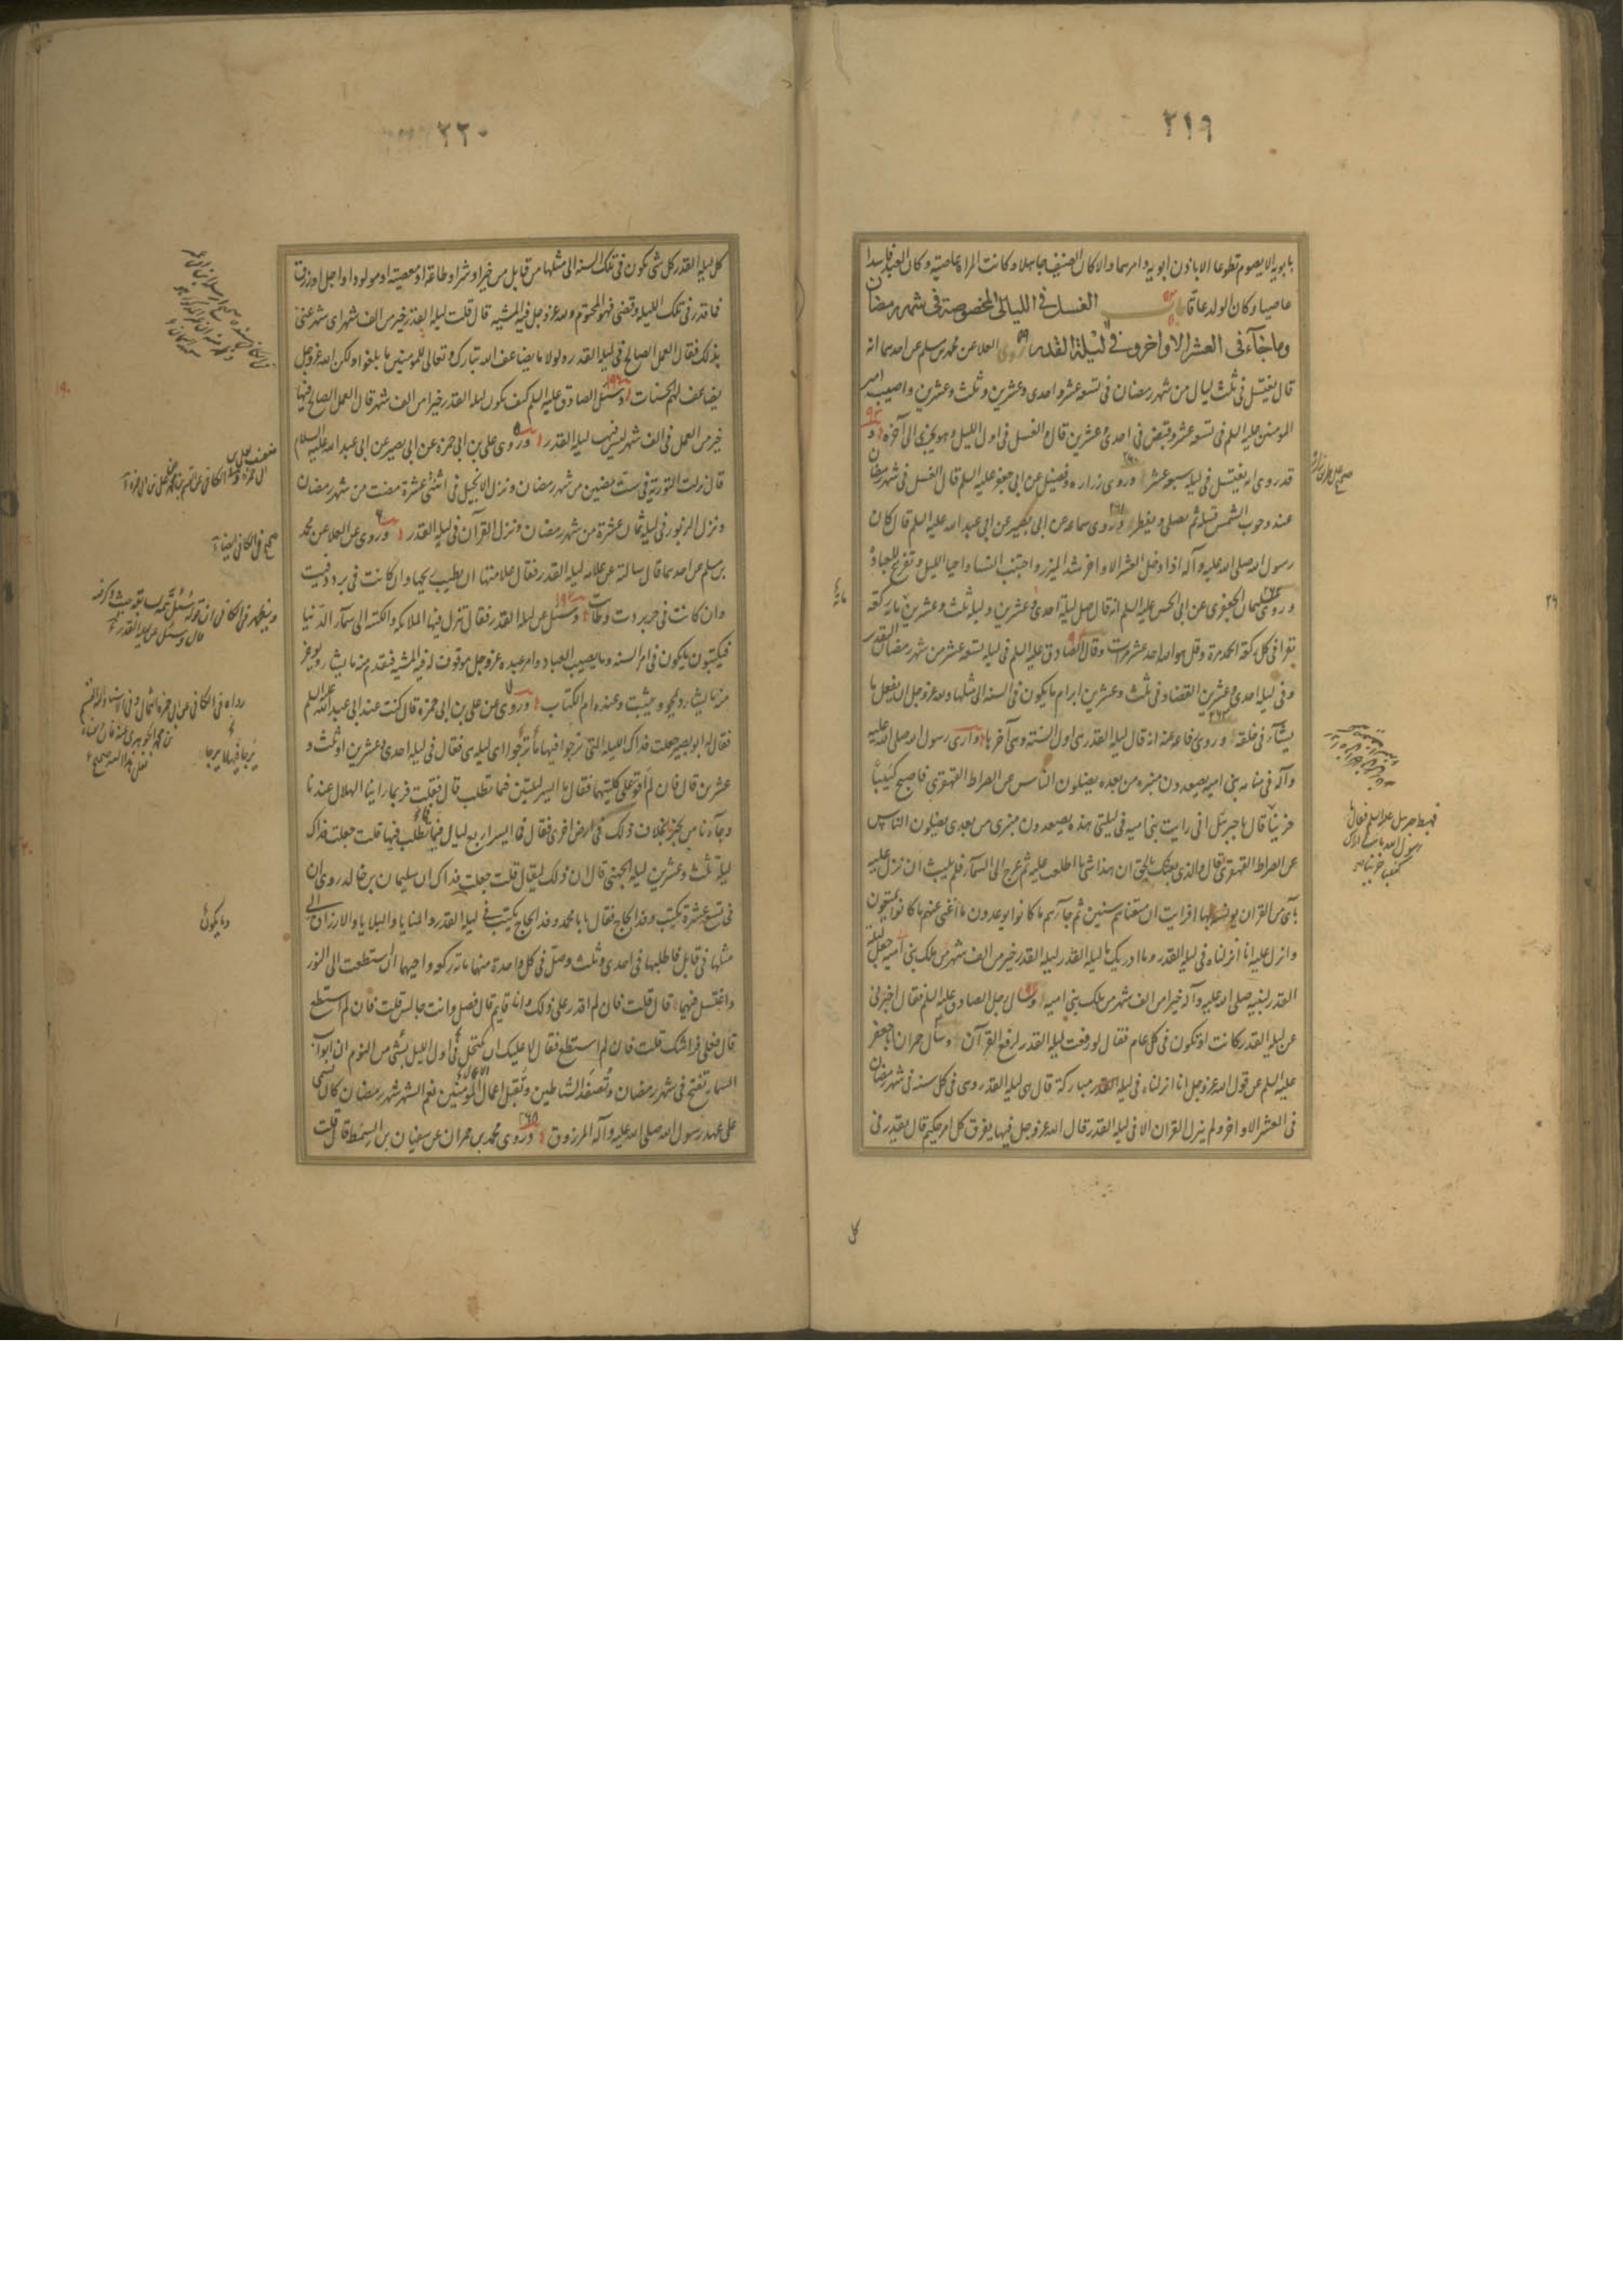 ٢١٩
بابويه الا يصوم تطوعا الا باذن ابويه وامرهما والا كان الضيف جاهلا وكانت المراة عاصية وكان العبد فاسدا
عاصيا وكان الولد عاقا باب الغسل في الليالي المخصوصة في شهر رمضان
وما جاء في العشر الاواخر وفي ليلة القدر روى العلا عن محمد بن مسلم عن احدهما انه
قال يغتسل في ثلث ليال من شهر رمضان في تسع عشر واحدى وعشرين وثلث وعشرين واصيب امير
المومنين عليه السلم في تسع عشر وقبض في احدى وعشرين قال والغسل في اول الليل وهو يجزى الى آخره و
قد روى انه يغتسل في ليلة سبع عشر وروى زرارة وفضيل عن ابي جعفر عليه السلم قال الغسل في شهر رمضان
عند وجوب الشمس قبيله ثم يصلى ويفطر وروى سماعه عن ابي بصير عن ابي عبد الله عليه السلم قال كان
رسول الله صلى الله عليه وآله اذا دخل العشر الاواخر شد الميزر واجتنب النسا واحيا الليل وتفرغ للعبادة
وروى سليمان الجعفرى عن ابي الحسن عليه السلم انه قال صل ليلة احدى وعشرين وليلة ثلث وعشرين مائة ركعة
تقرا في كل ركعة الحمد مرة وقل هو الله احد عشر مرات وقال الصادق عليه السلم في ليلة تسعة عشر من شهر رمضان التقدير
وفي ليلة احدى وعشرين القضاء وفي ثلث وعشرين ابرام ما يكون في السنة الى مثلها ولله عز وجل ان يفعل ما
يشآء في خلقه وروى رفاعه عنه انه قال ليلة القدر هى اول السنة وهى آخرها وارى رسول الله صلى الله عليه
وآله في منامه بنى امية يصعدون منبره من بعده يضلون الناس عن الصراط القهقرى فاصبح كئيبا
حزينا قال يا جبرئل انى رايت بنى امية في ليلتى هذه يصعدون منبرى من بعدى يضلون الناس
عن الصراط القهقرى فقال والذى بعثك بالحق ان هذا شئ ما اطلعت عليه ثم عرج الى السمآء فلم يلبث ان نزل عليه
بآى من القران يونسه بها افرايت ان متعناهم سنين ثم جآءهم ما كانوا يوعدون ما اغنى عنهم ما كانوا يمتعون
وانزل عليه انا انزلناه في ليلة القدر وما ادريك ما ليلة القدر ليلة القدر خير من الف شهر من ملك بنى امية جعل ليلة
القدر لنبيه صلى الله عليه وآله خيرا من الف شهر من ملك بنى امية وسال رجل الصادق عليه السلم فقال اخبرنى
عن ليلة القدر كانت او تكون في كل عام فقال لو رفعت ليلة القدر لرفع القرآن وسال حمران ابا جعفر
عليه السلم عن قول الله عز وجل انا انزلناه في ليلة مباركة قال هى ليلة القدر وهى في كل سنة في شهر رمضان
في العشر الاواخر ولم ينزل القران الا في ليلة القدر قال الله عز وجل فيها يفرق كل امر حكيم قال يقدر في
فهبط جبرئيل عليه السلم فقال يا
رسول الله ما لى اراك
كئيبا حزينا
كل
٢٢٠
كل ليلة القدر كل شئ يكون في تلك السنة الى مثلها من قابل من خير او شر او طاعة او معصية او مولود او اجل او رزق
فما قدر في تلك الليلة وقضى فهو المحتوم ولله عز وجل فيه المشية قال قلت ليلة القدر خير من الف شهر اى شئ عنى
بذلك فقال العمل الصالح في ليلة القدر ولولا ما يضاعف الله تبارك وتعالى للمومنين ما بلغوا ولكن الله عز وجل
يضاعف لهم الحسنات وسئل الصادق عليه السلم كيف يكون ليلة القدر خيرا من الف شهر قال العمل الصالح فيها
خير من العمل في الف شهر ليس فيها ليلة القدر وروى على بن ابى حمزة عن ابى بصير عن ابى عبد الله عليه السلام
قال نزلت التورية في ست مضين من شهر رمضان ونزل الانجيل في اثنتى عشرة مضت من شهر رمضان
ونزل الزبور في ليلة ثمان عشرة من شهر رمضان ونزل القرآن في ليلة القدر وروى عن العلا عن محمد
بن مسلم عن احدهما قال سالته عن علامة ليلة القدر فقال علامتها ان يطيب ريحها وان كانت في برد دفيت
وان كانت في حر بردت وطابت وسئل عن ليلة القدر فقال تنزل فيها الملائكة والكتبة الى سمآء الدنيا
فيكتبون ما يكون في امر السنة وما يصيب العباد وامر عنده عز وجل موقوف له فيه المشية فيقدم منه ما يشآء ويوخر
منه ما يشآء ويمحو ويثبت وعنده ام الكتاب وروى عن على بن ابى حمزة قال كنت عند ابى عبد الله عليه السلم
فقال له ابو بصير جعلت فداك الليلة التى ترجوا فيها ما ترجوا اى ليلة هى فقال في ليلة احدى وعشرين او ثلث و
عشرين قال فان لم اقو على كلتيهما فقال ما ايسر ليلتين فيما تطلب قال فقلت فربما راينا الهلال عندنا
وجآءنا من يخبرنا بخلاف ذلك في ارض اخرى فقال فما ايسر اربع ليال فيما تطلب فيها قلت جعلت فداك
ليلة ثلث وعشرين ليلة الجهنى قال ان ذلك ليقال قلت جعلت فداك ان سليمان بن خالد روى ان
في تسع عشرة يكتب وفد الحاج فقال يا با محمد وفد الحاج يكتب في ليلة القدر والمنايا والبلايا والارزاق الى
مثلها في قابل فاطلبها في احدى وثلث وصل في كل واحدة منهما مائة ركعة واحيهما ان استطعت الى النور
واغتسل فيهما قال قلت فان لم اقدر على ذلك وانا قايم قال فصل وانت جالس قلت فان لم استطع
قال فعلى فراشك قلت فان لم استطع فقال لا عليك ان تكتحل في اول الليل بشئ من النوم ان ابواب
السمآء تفتح في شهر رمضان وتصفد الشياطين وتقبل اعمال المومنين نعم الشهر شهر رمضان كان يسمى
على عهد رسول الله صلى الله عليه وآله المرزوق وروى محمد بن حمران عن سفيان بن السمط قال قلت
صحيح في الكافى ايضا
وما يكون